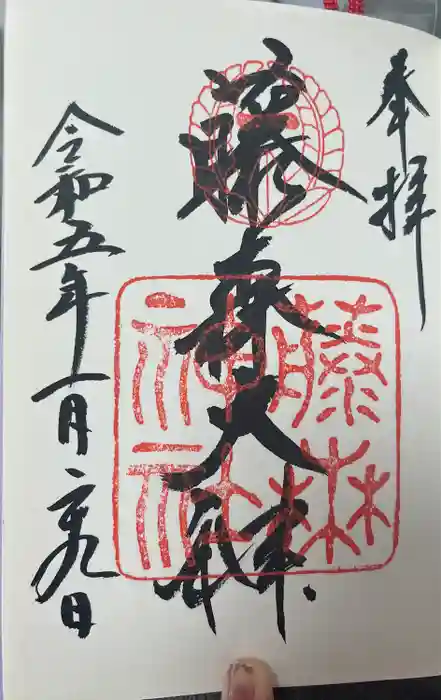 奉拝
藤森大
藤森
神社
令和五年一月二十九日